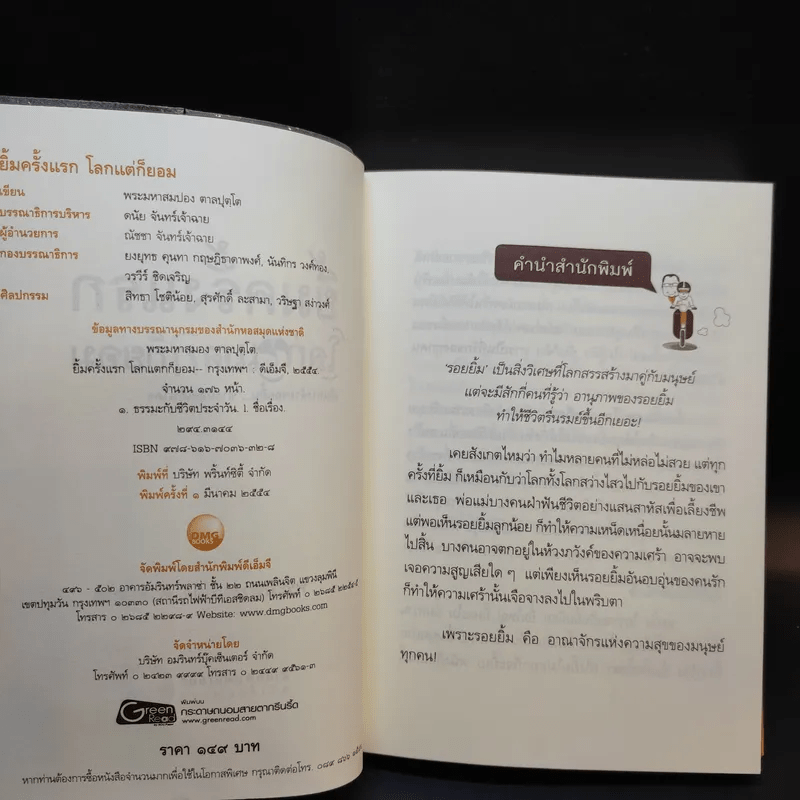 ยิ้มครั้งแรก โลกแตก็ยอม
เขียน พระมหาสมปอง ตาลปุตฺโต
บรรณาธิการบริหาร ดนัย จันทร์เจ้าฉาย
ผู้อำนวยการ ณัชชา จันทร์เจ้าฉาย
กองบรรณาธิการ ยงยุทธ คุนทา กฤษฎิธาดาพงศ์, นันทิกร วงศ์ทอง,
วรวีร์ ชิดเจริญ
ศิลปกรรม สิทธา โชติน้อย, สุรศักดิ์ ละสามา, วริษฐา สง่าวงศ์
ข้อมูลทางบรรณานุกรมของสำนักหอสมุดแห่งชาติ
พระมหาสมอง ตาลปุตฺโต
ยิ้มครั้งแรก โลกแตกก็ยอม-- กรุงเทพฯ : ดีเอ็มจี, ๒๕๕๔.
จำนวน ๑๗๖ หน้า.
๑. ธรรมะกับชีวิตประจำวัน. l. ชื่อเรื่อง.
๒๙๔.๓๑๔๔
ISBN ๙๗๘-๖๑๖-๗๐๓๖-๓๒-๘
พิมพ์ที่ บริษัท พริ้นท์ซิตี้ จำกัด
พิมพ์ครั้งที่ ๑ มีนาคม ๒๕๕๔
DMG
BOOKS
จัดพิมพ์โดยสำนักพิมพ์ดีเอ็มจี
๔๙๖ - ๕๐๒ อาคารอัมรินทร์พลาซ่า ชั้น ๒๒ ถนนเพลินจิต แขวงลุมพินี
เขตปทุมวัน กรุงเทพฯ ๑๐๓๓๐ (สถานีรถไฟฟ้าบีทีเอสชิดลม) โทรศัพท์ ๐ ๒๖๘๕
โทรสาร ๐ ๒๖๘๕ ๒๒๙๘-๙ Website: www.dmgbooks.com
จัดจำหน่ายโดย
บริษัท อมรินทร์บุ๊คเซ็นเตอร์ จำกัด
โทรศัพท์ ๐ ๒๔๒๓ ๙๙๙๙ โทรสาร ๐ ๒๔๔๙ ๙๕๖๑-๓
Green
Read
พิมพ์บน
กระดาษถนอมสายตากรีนรี้ด
www.greenread.com
ราคา ๑๔๙ บาท
หากท่านต้องการซื้อหนังสือจำนวนมากเพื่อใช้ในโอกาสพิเศษ กรุณาติดต่อโทร. ๐๘๙
คำนำสำนักพิมพ์
'รอยยิ้ม' เป็นสิ่งวิเศษที่โลกสรรสร้างมาคู่กับมนุษย์
แต่จะมีสักกี่คนที่รู้ว่า อานุภาพของรอยยิ้ม
ทำให้ชีวิตรื่นรมย์ขึ้นอีกเยอะ!
เคยสังเกตไหมว่า ทำไมหลายคนที่ไม่หล่อไม่สวย แต่ทุก
ครั้งที่ยิ้ม ก็เหมือนกับว่าโลกทั้งโลกสว่างไสวไปกับรอยยิ้มของเขา
และเธอ พ่อแม่บางคนฝ่าฟันชีวิตอย่างแสนสาหัสเพื่อเลี้ยงชีพ
แต่พอเห็นรอยยิ้มลูกน้อย ก็ทำให้ความเหน็ดเหนื่อยนั้นมลายหาย
ไปสิ้น บางคนอาจตกอยู่ในห้วงภวังค์ของความเศร้า อาจจะพบ
เจอความสูญเสียใด ๆ แต่เพียงเห็นรอยยิ้มอันอบอุ่นของคนรัก
ก็ทำให้ความเศร้านั้นเจือจางลงไปในพริบตา
เพราะรอยยิ้ม คือ อาณาจักรแห่งความสุขของมนุษย์
ทุกคน!